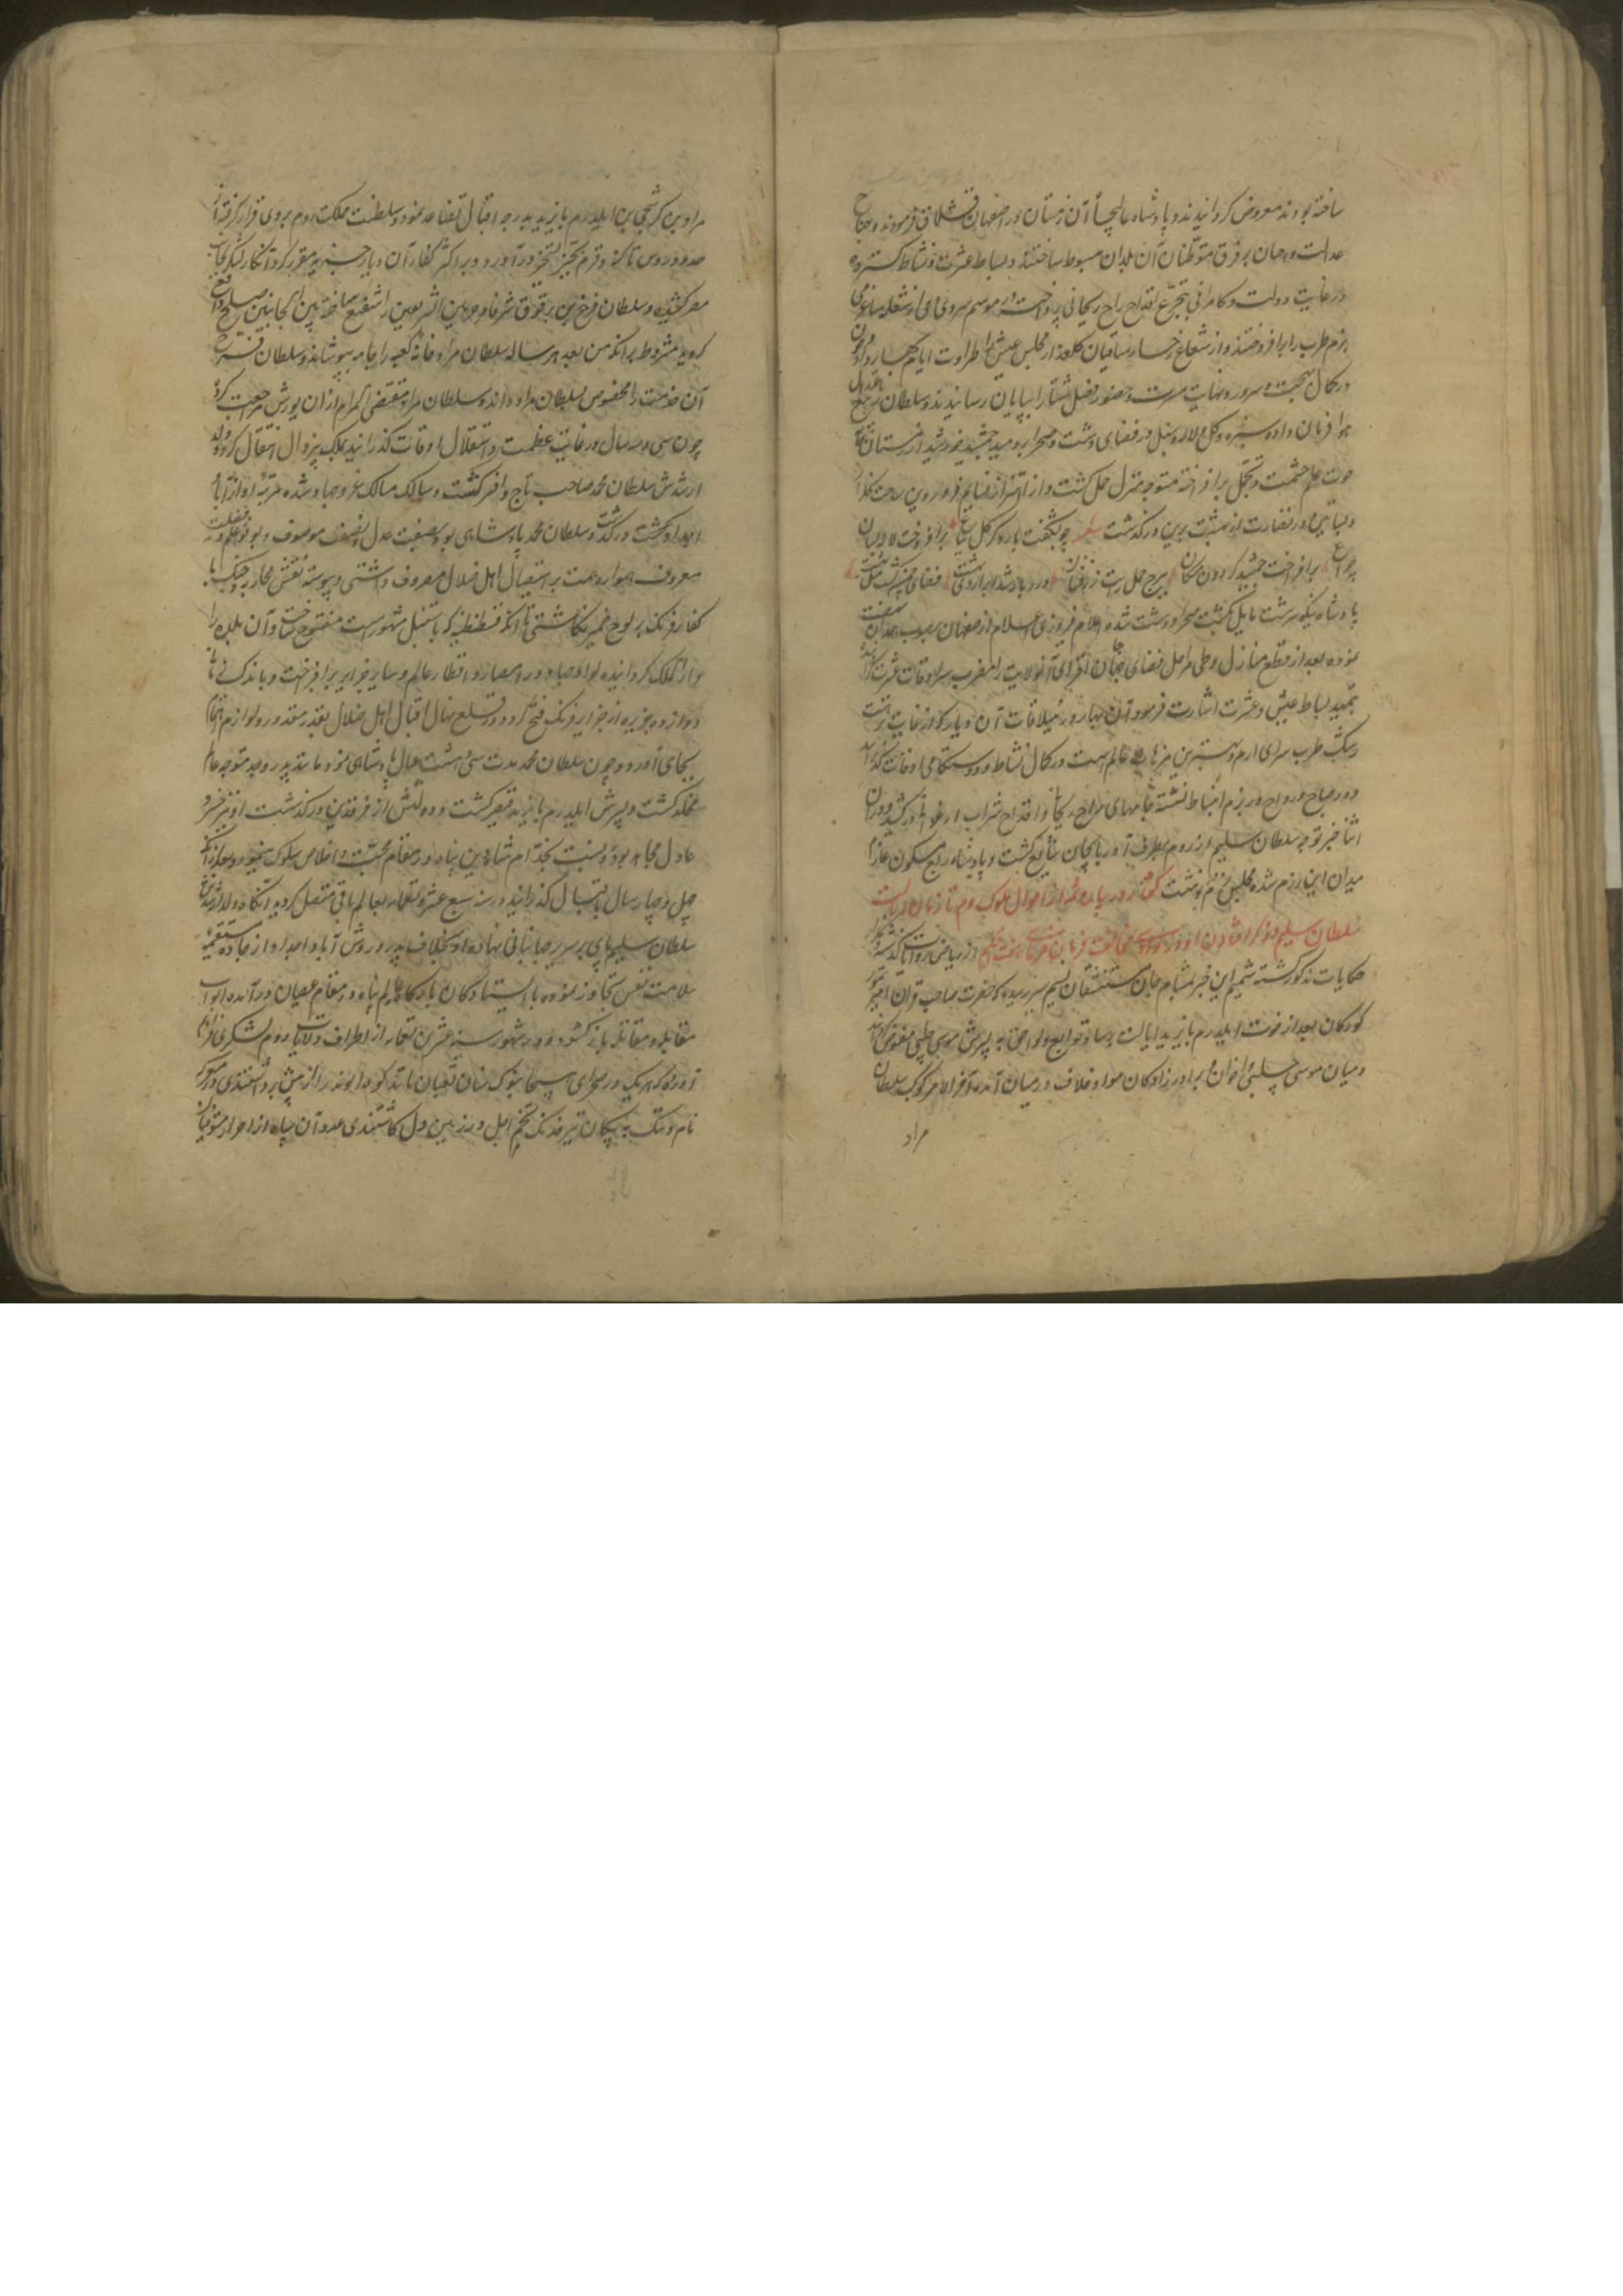 ساخته بودند معروض گردانیدند و پادشاه عالیجاه آن زمستان در اصفهان قشلاق فرمودند و جناح
عدالت و احسان بر فرق متوطنان آن بلدان مبسوط ساختند و بساط عشرت و نشاط گسترده
در غایت دولت و کامرانی بتجرع اقداح راح ریحانی پرداخت و در موسم سرمای دی از شعله ساغر می
بزم طرب را برافروختند و از شعاع رخسار ساقیان گلعذار مجلس عیش را طراوت ایام بهار داد و چون
در کمال بهجت و سرور و نهایت مسرت و حضور فصل شتا را بپایان رسانیدند و سلطان ربیع باعتدال
هوا فرمان داده سبزه و گل و لاله و سنبل در فضای دشت و صحرا بردمید جمشید خورشید از شبستان
حوت علم حشمت و تجمل برافراخته متوجه منزل حمل گشت و از اهتزاز نسایم فروردین ساحت گلزار
و بساتین در نضارت از بهشت برین درگذشت شعر چو بشکفت بار دگر گل بباغ برافروخت لاله بسان
چراغ برافراخت جمشید گردون مکان ببرج حمل رایت زرفشان
پادشاه نیکو سرشت مایل بگشت صحرا و دشت شده اعلام فیروزی اعلام از صفهان بصوب همدان نهضت
نموده بعد از قطع منازل و طی مراحل فضای جنان افزای آنولایت را مضرب سرادقات عشرت گردانیده
بتمهید بساط عیش و عشرت اشارت فرمود و آن بهار در ییلاقات آن دیار که از غایت نزهت
رشک طرب سرای ارم و بهترین منزهات عالم است در کمال نشاط و دوستکامی اوقات گذرانید
و در صباح و رواح در بزم انبساط نشسته جامهای راح ریحانی و اقداح شراب ارغوانی درکشید و در آن
اثنا خبر توجه سلطان سلیم از روم بطرف آذربایجان شایع گشت و پادشاه ربع مسکون عازم
میدان این رزم شده مجلس بزم درنوشت گفتار در بیان شمه از احوال ملوک روم تا زمان ایالت
سلطان سلیم و ذکر افتادن او در وادی مخالفت فرمان فرمای هفت اقلیم از ریاض روایات گذشته
حکایات مذکور گشته شمیم این خبر بمشام جان مستنشقان نسیم سیر رسیده که حضرت صاحب قران امیر تیمور
گورکان بعد از فوت ایلدرم بایزید ایالت برسا و توابع و لواحق به پسرش موسی چلپی مفوض گردانید
و میان موسی چلپی و اخوان و برادرزادگان مواد خلاف در میان آمده آخرالامر کوکب سلطان
مراد
مراد بن کرشچی بن ایلدرم بایزید بدرجه اقبال تصاعد نمود و سلطنت مملکت روم بروی قرار گرفته از
حدود روس تا کفه و قرم بحیز تسخیر درآورد و بر اکثر کفار آن دیار جزیه مقرر کرد آنگاه لشکر بجانب
مصر کشیده و سلطان فرخ بن برقوق شرفا و حرمین الشریفین را شفیع ساخته بین الجانبین صلح واقع
گردید مشروط برآنکه من بعد هر ساله سلطان مراد خانه کعبه را جامه بپوشاند و سلطان فرخ
آن خدمت را مخصوص بسلطان مراد داند و سلطان مراد مقضی المرام از آن یورش مراجعت کرد
چون سی و سه سال در غایت عظمت و استقلال اوقات گذرانید بملک بیزوال انتقال کرد و ولد
ارشدش سلطان محمد صاحب تاج و افسر گشت و سالک مسالک غزو جهاد شده مرتبه او از آبا و
اجداد بگذشت و سلطان محمد پادشاهی بود بصفت عدل و نصفت موصوف و بوفور علم و فضیلت
معروف همواره همت بر استیصال اهل ضلال مصروف داشتی و پیوسته نقش محاربه و جنگ با
کفار فرنگ بر لوح ضمیر نگاشتی تا آنکه قسطنطنیه که باستنبل مشهور است مفتوح ساخت و آن بلده را
دار الملک گردانیده لوای جهاد در امصار و اقطار عالم و سایر جزایر برافراخت و باندک زمانی
دوازده جزیره از جزایر فرنگ فتح کرد و در قلع نهال اقبال اهل ضلال بقدر مقدور لوازم اهتمام
بجای آورد و چون سلطان محمد مدت سی و هشت سال پادشاهی نمود مانند پدر و جد متوجه عالم
عقبی گشت و پسرش ایلدرم بایزید قیصر گشت و دولتش از فرقدین درگذشت او نیز خسرو
عادل مجاهد بود و نسبت بخدام شاه دین پناه در مقام محبت و اخلاص سلوک مینمود و بعد از آنکه
چهل و چهار سال باستقبال گذرانید در سنه سبع عشر و تسعمایه بعالم باقی منتقل گردید آنگاه ولد ارشدش
سلطان سلیم پای بر سریر جهانبانی نهاد و او بخلاف پدر و روش آبا و اجداد از جاده مستقیمه
سلامت نفس تجاوز نموده با ایستادگان بارگاه عالم پناه در مقام عصیان درآمده ابواب
مقابله و مقاتله باز گشود و در شهور سنه عشرین و تسعمایه از اطراف ولایات روم لشکری فراهم
آورد که هر یک در صحرای هیجا بنوک سنان ثعبان مانند کوه الوند را از پیش برداشتندی و در معرکه
نام و ننگ به پیکان تیر خدنگ تخم اجل در زمین دل کاشتندی عدد آن سپاه از احرار متوقیان